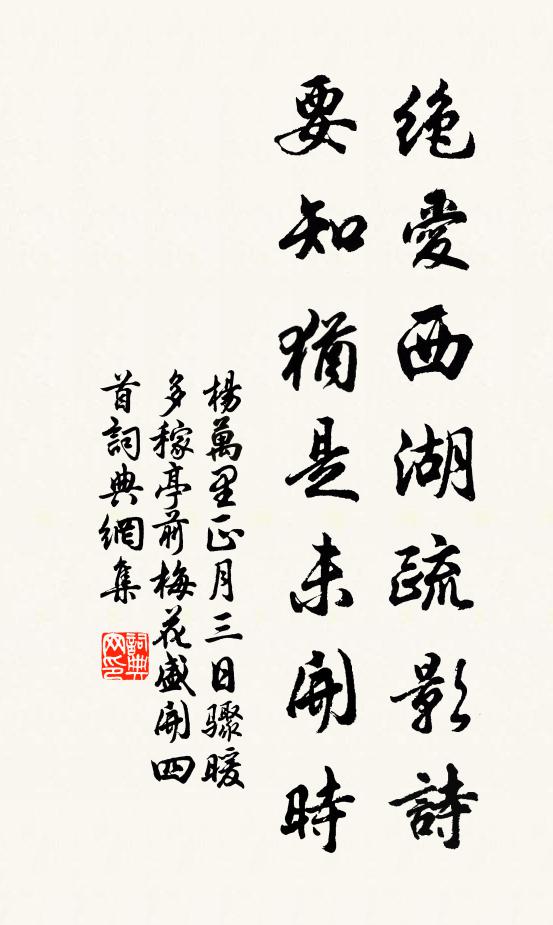 絶愛西湖疏影詩
要知猶是未開時
楊萬里正月三日驟暖
多稼亭前梅花盛開四
首詞典網集
詞典
网印